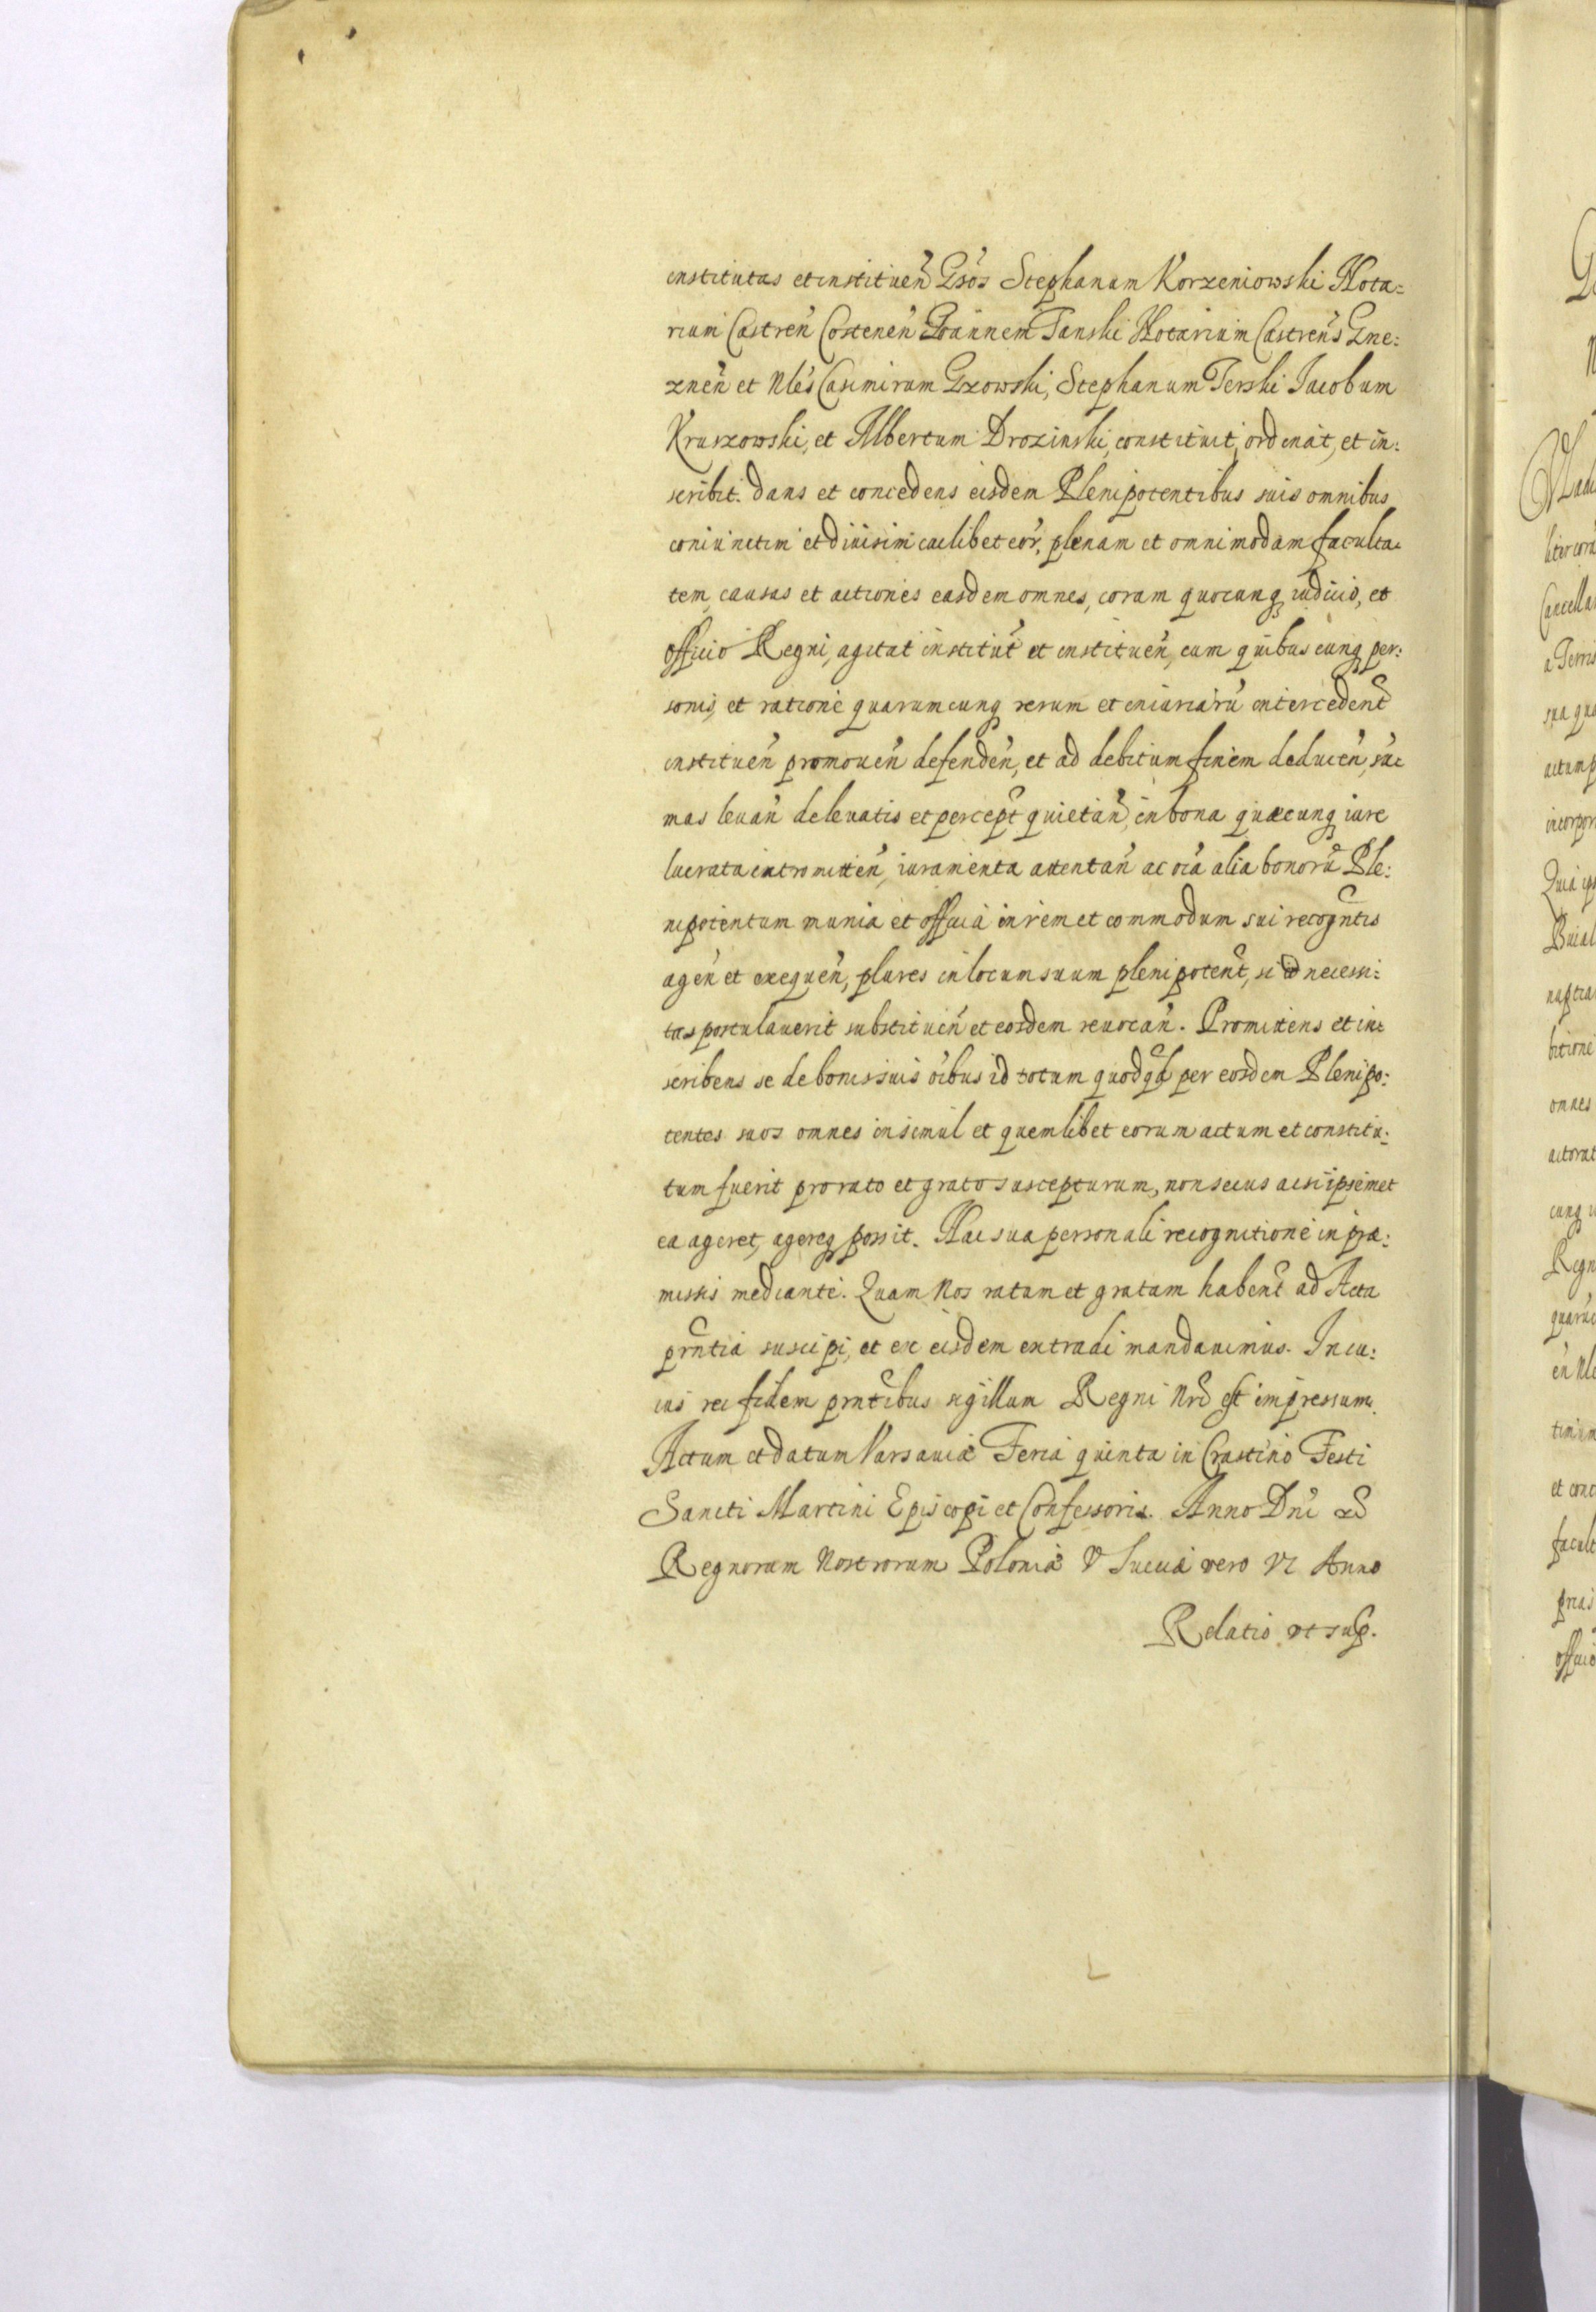 institutas et instituen̄ Gsos Stephanum Korzeniowski Nota=
rium Castren̄ Costenen̄ Joannem Tanski Notarium Castren̄s Gne:
znen̄ et Nles Casimirum Gzowski, Stephanum Terski Jacobum
Kruszowski, et Albertum Drozinski, constituit, ordinat, et in:
scribit. dans et concedens eisdem Plenipotentibus suis omnibus
coniunctim et diuisim cuilibet eor̃, plenam et omnimodam faculta:
tem, causas et actiones easdem omnes, coram quocunq iudicio, et
officio Regni, agitat institut̃ et instituen̄, cum quibuscunq per:
sonis, et ratione quarumcunq rerum et iniuriarũ intercedent̃
instituen̄ promouen̄ defenden̄, et ad debitum finem deducen̄, sũ:
mas leuan̄ de leuatis et percept̃ quietan̄, in bona quæcunq iure
lucrata intromitten̄, iuramenta attentan̄ ac oĩa alia bonorũ Ple:
nipotentum munia et officia in rem et commodum sui recogn̄tis
agen̄ et exequen̄, plures in locum suum plenipotent̃, si id necessi:
tas postulauerit substituen̄ et eosdem reuocan̄. Promittens et in:
scribens se de bonis suis oĩbus id totum quodqd̃ per eosdem Plenipo:
tentes suos omnes insimul et quemlibet eorum actum et constitu:
tum fuerit pro rato et grato suscepturum, non secus ac si ipsemet
ea ageret, agereq possit. Hac sua personali recognitione in præ:
missis mediante. Quam Nos ratam et gratam habent̃ ad Acta
prñtia suscipi, et ex eisdem extradi mandauimus. In cu:
ius rei fidem prñtibus sigillum Regni Nrĩ est impressum.
Actum et datum Varsauiæ Feria quinta in Crastino Festi
Sancti Martini Episcopi et Confessoris. Anno Dnĩ
Regnorum Nostrorum Poloniæ V Sueciæ vero VI Anno
Relatio vt sup.